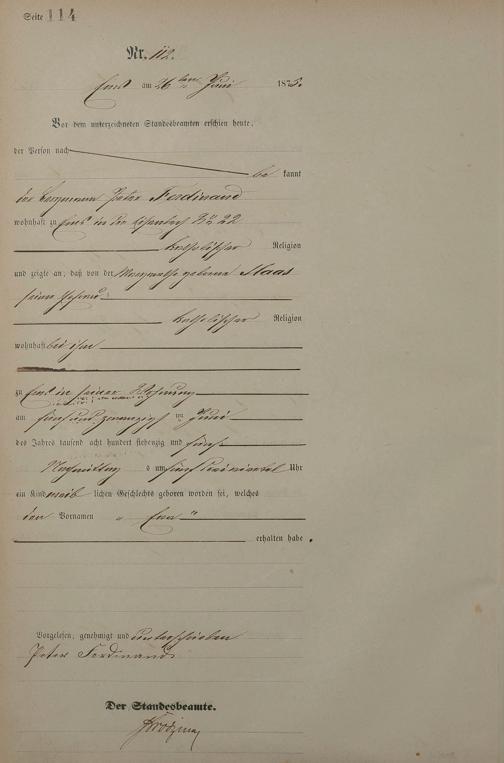 Seite 114
Nr. 112.
Ems am 26 ten Juni 1875.
Vor dem unterzeichneten Standesbeamten erschien heute,
der Person nach
be kannt
der Bergmann Peter Ferdinand
wohnhaft zu Ems in der No 22
katholischer Religion
und zeigte an, daß von der Margarethe geborene Maas
seiner Ehefrau
katholischer Religion
wohnhaft bei ihm
zu Ems in seiner Wohnung
am fünf und zwanzigsten Juni
des Jahres tausend acht hundert siebenzig und fünf
Nachmittags um fünf Uhr
ein Kind weib lichen Geschlechts geboren worden sei, welches
den Vornamen
erhalten habe.
Vorgelesen, genehmigt und unterschrieben
Peter Ferdinand
Der Standesbeamte.